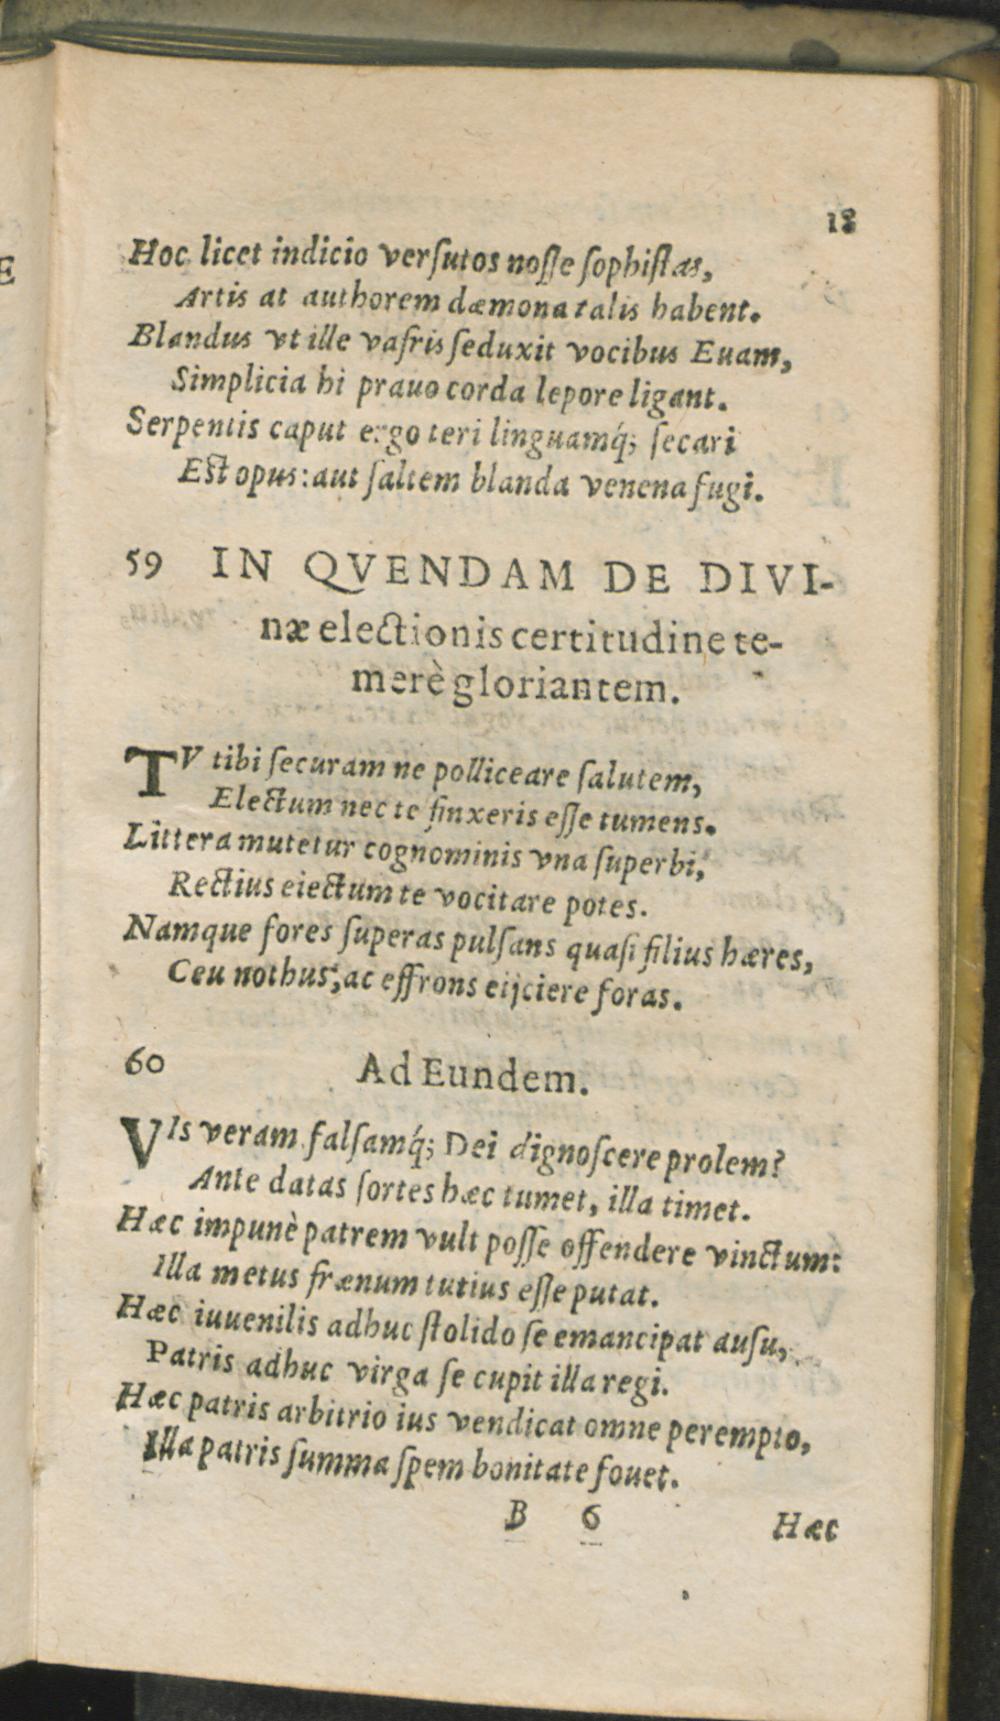 18
Hoc licet indicio verſutos noſſe ſophiſtas,
Artis at authorem dæmona talis habent.
Blandus vt ille vafris ſeduxit vocibus Euam,
Simplicia hi prauo corda lepore ligant.
Serpentis caput ergo teri linguamq́; ſecari
Est opus: aut ſaltem blanda venena fugi.
59 IN QVENDAM DE DIVI-
næ electionis certitudine te-
merè gloriantem.
TV tibi ſecuram ne polliceare ſalutem,
Electum nec te finxeris eſſe tumens.
Littera mutetur cognominis vna ſuperbi,
Rectius eiectum te vocitare potes.
Namque fores ſuperas pulſans quaſi filius hæres,
Ceu nothus, ac effrons eijciere foras.
60 Ad Eundem.
VIs veram falſamq́; Dei dignoſcere prolem?
Ante datas ſortes hæc tumet, illa timet.
Hæc impunè patrem vult poſſe offendere vinctum:
Illa metus frænum tutius eſſe putat.
Hæc iuuenilis adhuc ſtolido ſe emancipat auſu,
Patris adhuc virga ſe cupit illa regi.
Hæc patris arbitrio ius vendicat omne perempto,
Illa patris ſumma ſpem bonitate fouet.
B 6 Hæc